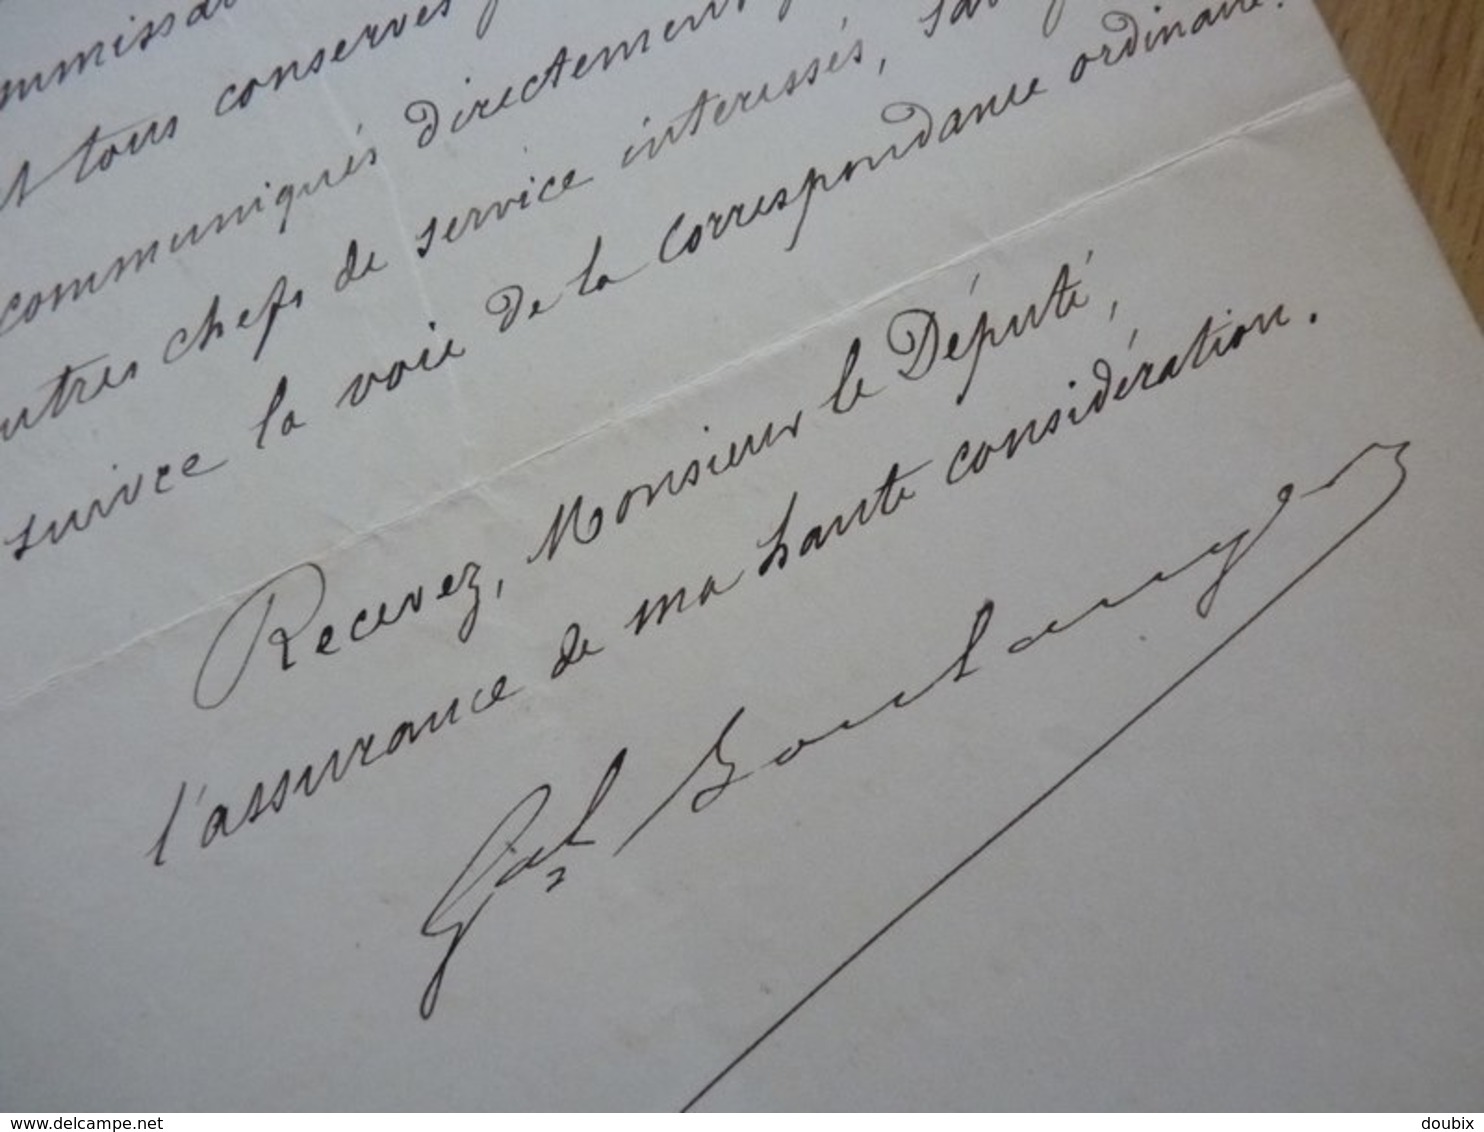 et tous conservés
communiqués directement
autres chefs de service intéressés,
suivre la voie de la correspondance ordinaire.
Recevez, Monsieur le Député,
l'assurance de ma haute considération.
Gal Boulanger
www.delcampe.net
doubix